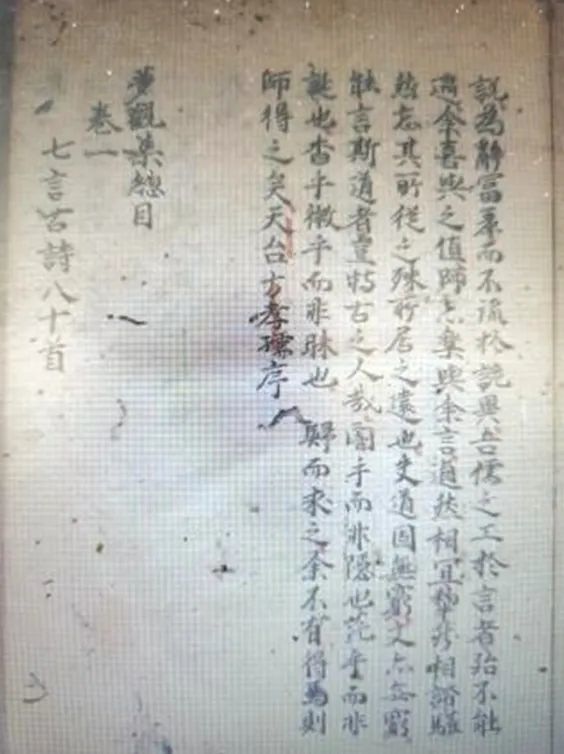 說為辭富豪而不流於詭異吾儒之工於言者殆不能
過余喜與之值師亦樂與余言適然相宜犂然相諧驩
然忘其所從之殊所居之遠也夫道固無窮文亦無窮
能言斯道者豈特古之人哉闇乎而非隱也茫乎而非
誕也杳乎微乎而非昧也 歸而求之余不有得焉則
師得之矣天台方孝孺序
夢觀集總目
卷一
七言古詩八十首